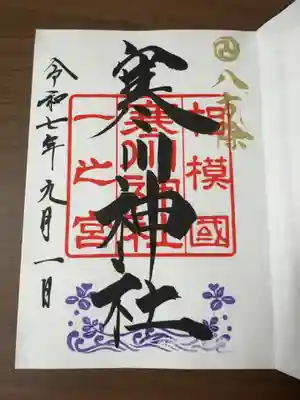 八方除
寒川神社
相模國
寒川神社
一之宮
令和七年九月一日